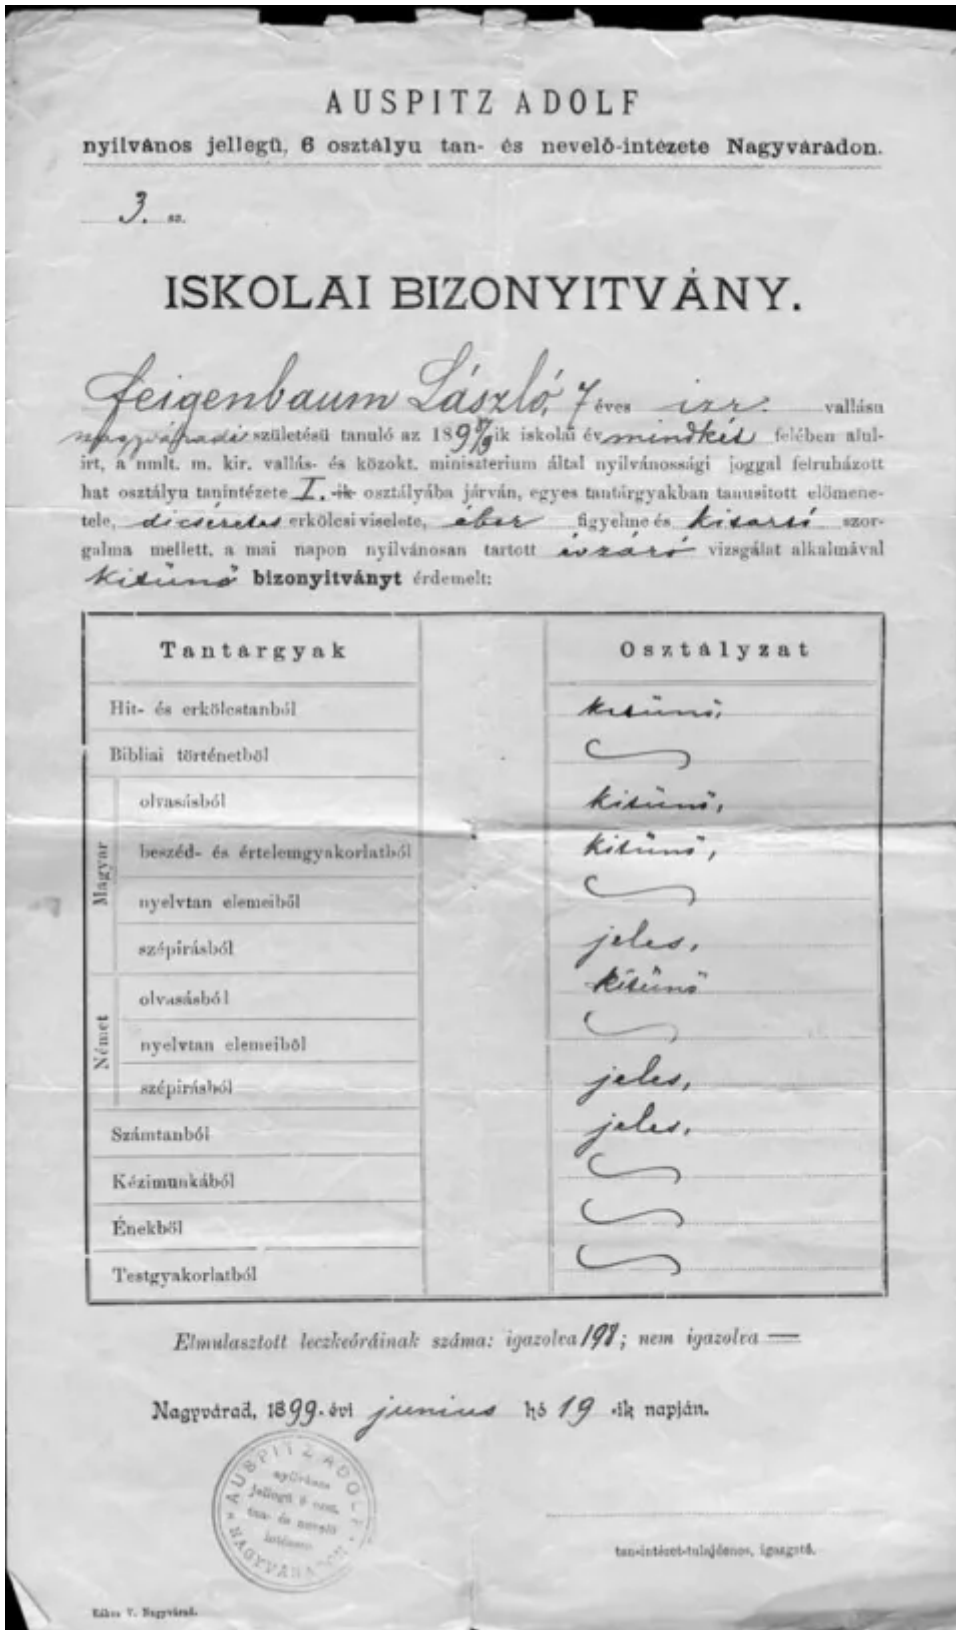 AUSPITZ ADOLF
nyilvános jellegü, 6 osztályu tan- és nevelő-intézete Nagyváradon.
3. sz.
ISKOLAI BIZONYITVÁNY.
Feigenbaum László, 7 éves izr. vallásu
nagyváradi születésü tanuló az 1898/9 ik iskolai év mindkét felében alul-
irt, a nmlt. m. kir. vallás- és közokt. miniszterium által nyilvánossági joggal felruházott
hat osztályu tanintézete I. -ik osztályába járván, egyes tantárgyakban tanusitott előmene-
tele, dicséretes erkölcsi viselete, éber figyelme és kitartó szor-
galma mellett, a mai napon nyilvánosan tartott évzáró vizsgálat alkalmával
kitünő bizonyitványt érdemelt:
Tantárgyak Osztályzat
Hit- és erkölcstanból kitünő,
Bibliai történetből
Magyar
olvasásból kitünő,
beszéd- és értelemgyakorlatból kitünő,
nyelvtan elemeiből
szépirásból jeles,
Német
olvasásból kitünő
nyelvtan elemeiből
szépirásból jeles,
Számtanból jeles,
Kézimunkából
Énekből
Testgyakorlatból
Elmulasztott leczkeóráinak száma: igazolva 198; nem igazolva —
Nagyvárad, 1899. évi junius hó 19 -ik napján.
AUSPITZ ADOLF
nyilvános
jellegü 6 oszt.
tan- és nevelő
intézete
NAGYVÁRADON
tan-intézet-tulajdonos, igazgató.
V. Nagyvárad.